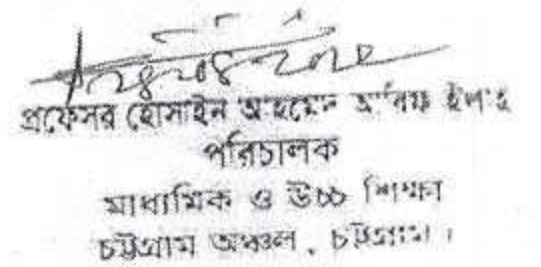 প্রফেসর হোসাইন আহমেদ আরিফ ইলাহী
পরিচালক
মাধ্যমিক ও উচ্চ শিক্ষা
চট্টগ্রাম অঞ্চল, চট্টগ্রাম।